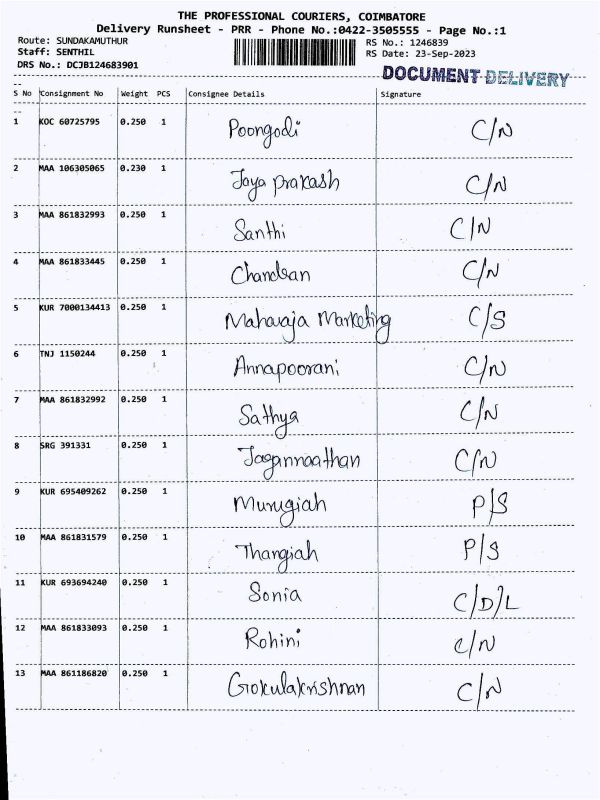 THE PROFESSIONAL COURIERS, COIMBATORE
Delivery Runsheet - PRR - Phone No.:0422-3505555 - Page No.:1
Route: SUNDAKAMUTHUR
RS No.: 1246839
Staff: SENTHIL
RS Date: 23-Sep-2023
DRS No.: DCJB124683901
DOCUMENT DELIVERY
S No Consignment No Weight PCS Consignee Details Signature
1 KOC 60725795 0.250 1 Poongodi C/N
2 MAA 106305065 0.230 1 Jaya prakash C/N
3 MAA 861832993 0.250 1 Santhi C/N
4 MAA 861833445 0.250 1 Chandran C/N
5 KUR 7000134413 0.250 1 Maharaja Marketing C/S
6 TNJ 1150244 0.250 1 Annapoorani C/N
7 MAA 861832992 0.250 1 Sathya C/N
8 SRG 391331 0.250 1 Jagannaathan C/N
9 KUR 695409262 0.250 1 Murugiah P/S
10 MAA 861831579 0.250 1 Thangiah P/S
11 KUR 693694240 0.250 1 Sonia C/D/L
12 MAA 861833093 0.250 1 Rohini C/N
13 MAA 861186820 0.250 1 Gokulakrishnan C/N